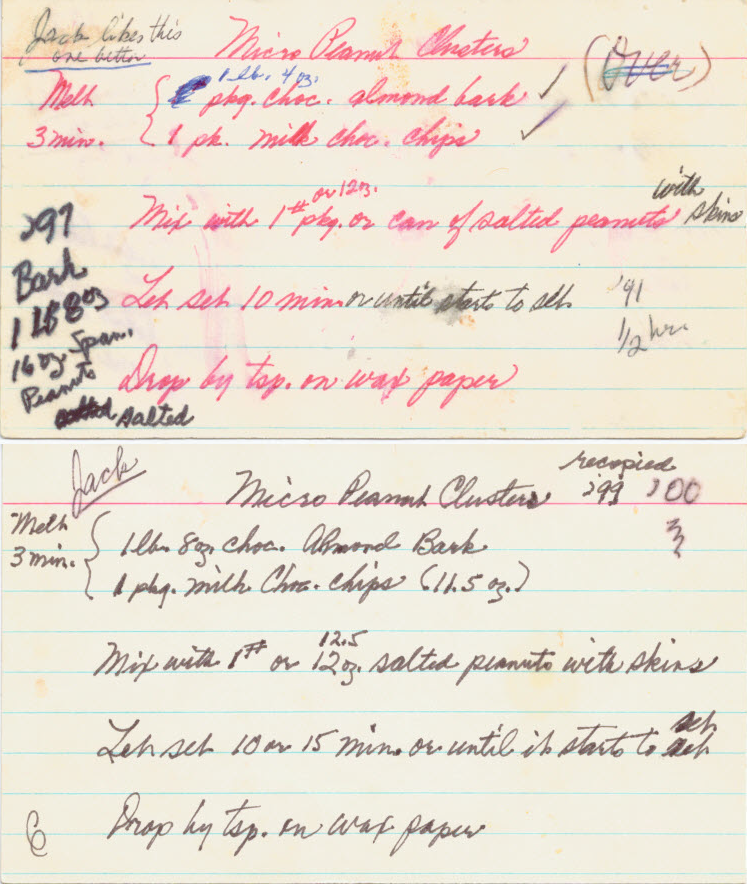 Jack likes this
one better
Micro Peanut Clusters
(Over)
Melt
3 min.
1 lb. 4 oz.
pkg. choc. almond bark ✓
1 pk. milk choc. chips ✓
or 12 oz.
Mix with 1# pkg. or can of salted peanuts with skins
'97
Bark
1 lb 8 oz
16 oz. Span.
Peanuts
salted
Let set 10 min. or until starts to set
'91
1/2 hr.
Drop by tsp. on wax paper
Jack
Micro Peanut Clusters
recopied
'99 '00
Melt
3 min.
1 lb. 8 oz. choc. Almond Bark
1 pkg. milk Choc. chips (11.5 oz.)
12.5
Mix with 1# or 12 oz. salted peanuts with skins
Let set 10 or 15 min. or until it starts to set
set
Drop by tsp. on wax paper